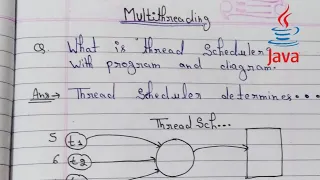 Multithreading
Q. What is Thread Scheduler
with program and diagram.
Java
Ans → Thread Scheduler determines....
ThreadSch...
5 t1
6 t2